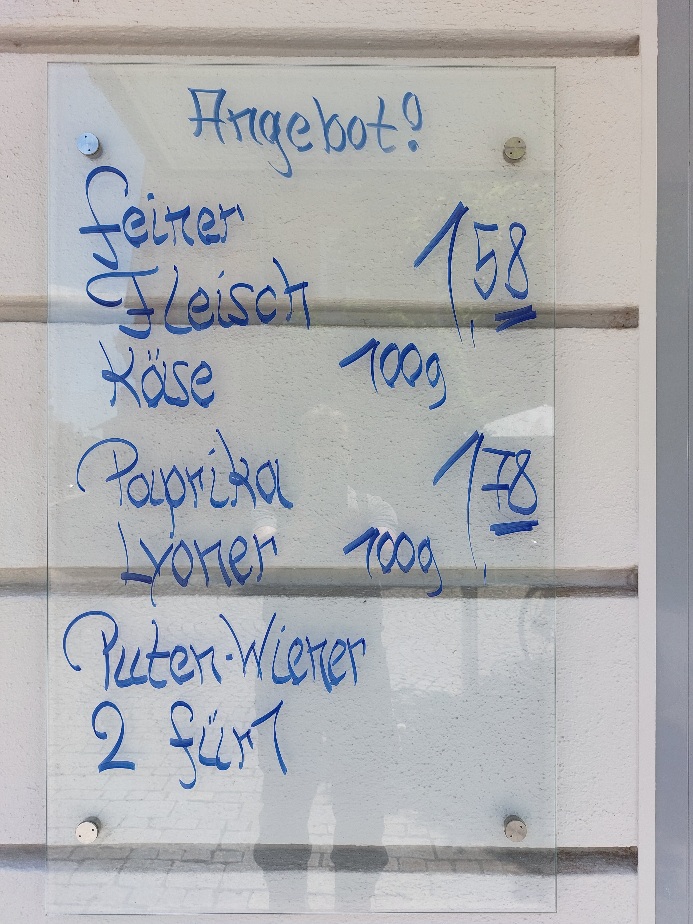 Angebot!
feiner
Fleisch 1,58
Käse 100g
Paprika 1,78
Lyoner 100g
Puten-Wiener
2 für 1